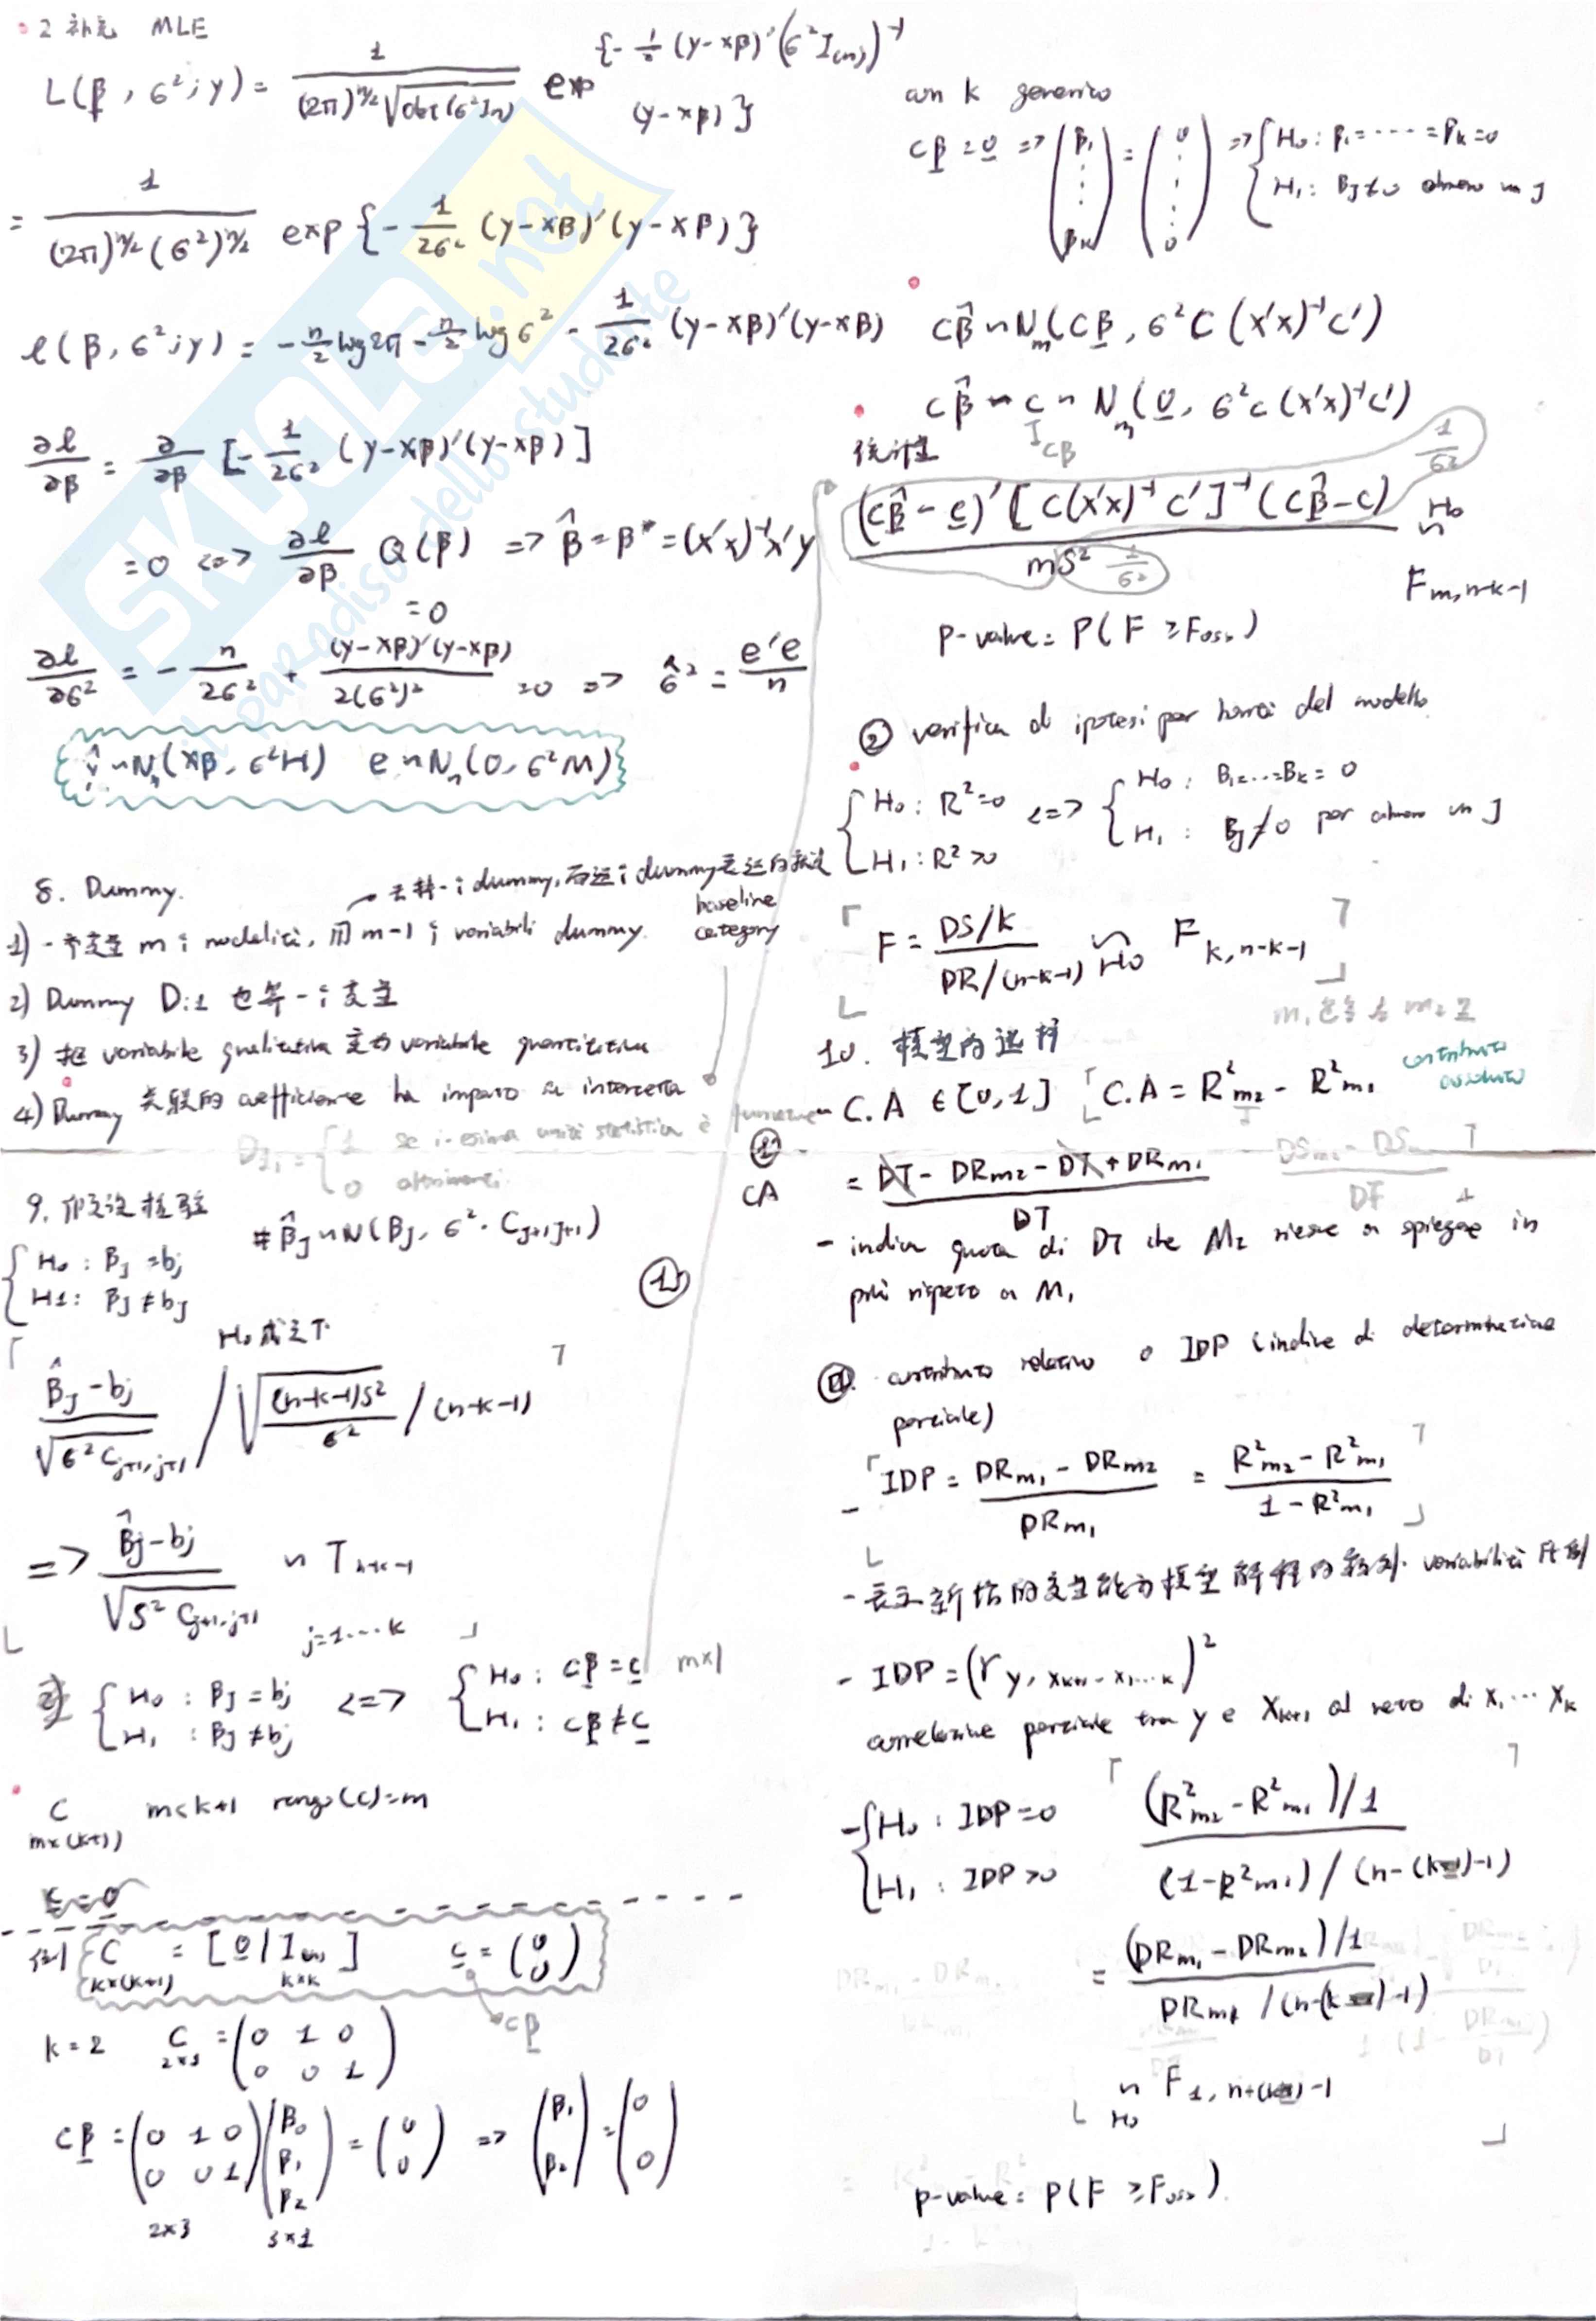 2 补充 MLE
L(β, σ²; y) = 1 / ((2π)^{n/2} √det(σ²In)) exp {-1/2 (y-xβ)'(σ²I(n))⁻¹ (y-xβ)}
= 1 / ((2π)^{n/2} (σ²)^{n/2}) exp {-1/2σ² (y-xβ)'(y-xβ)}
ℓ(β, σ²; y) = -n/2 log2π - n/2 log σ² - 1/2σ² (y-xβ)'(y-xβ)
∂ℓ/∂β = ∂/∂β [-1/2σ² (y-xβ)'(y-xβ)]
=0 <=> ∂ℓ/∂β Q(β) => β̂ = β* = (x'x)⁻¹x'y
=0
∂ℓ/∂σ² = -n/2σ² + (y-xβ)'(y-xβ) / 2(σ²)² =0 => σ̂² = e'e/n
ŷ ~ Nn(xβ, σ²H) e ~ Nn(0, σ²M)
8. Dummy.
去掉一个 dummy, 而这个 dummy
baseline category
1) 一个变量 m 个 modalità, 用 m-1 个 variabili dummy.
2) Dummy 也算一个变量
3) 把 variabile qualitativa 变为 variabile quantitativa
4) Dummy 关联的 coefficiente ha impatto su intercetta
{1 se i-esima unità statistica è
0 altrimenti.
9. 假设检验
# β̂j ~ N(βj, σ²·Cj+1,j+1)
{H₀ : βj = bj
H1 : βj ≠ bj
H₀ 成立下
(β̂j - bj) / √(σ² Cj+1,j+1) / √((n-k-1)S²/σ²) / (n-k-1)
=> (β̂j - bj) / √(S² Cj+1,j+1) ~ T n-k-1
j=1···k
2) {H₀ : βj = bj <=> {H₀ : cβ = c m×1
H₁ : βj ≠ bj H₁ : cβ ≠ c
C m<k+1 rango(c)=m
m×(k+1)
c=0
C = [0 | I(k)] c = (0 0)
k×(k+1) k×k
cβ
k=2 C = (0 1 0
2×3 0 0 1)
cβ = (0 1 0 / 0 0 1)(β₀ β₁ β₂) = (0 0) => (β₁ β₂) = (0 0)
2×3 3×1
con k generico
cβ = 0 => (β₁ ⋮ βk) = (0 ⋮ 0) => {H₀ : β₁=····=βk=0
H₁ : βj≠0 almeno un j
cβ̂ ~ Nm(cβ, σ²C(x'x)⁻¹c')
cβ̂ - c ~ Nm(0, σ²c(x'x)⁻¹c')
cβ
统计量
(cβ̂ - c)' [c(x'x)⁻¹c']⁻¹ (cβ̂ - c) 1/σ²
mS² 1/σ²
H₀ ~
F m,n-k-1
p-value = P(F ≥ Foss)
② verifica di ipotesi per bontà del modello
{H₀ : R²=0 <=> {H₀ : B₁=...=Bk = 0
H₁ : R²>0 H₁ : Bj≠0 per almeno un j
F = DS/k / DR/(n-k-1) ~ H₀ F k,n-k-1
m₁ 包含在 m₂ 里
10. 模型的选择
① CA
- C.A ∈ [0,1] C.A = R²m₂ - R²m₁ contributo assoluto
= (DT - DRm₂ - DT + DRm₁) / DT
- indica quota di DT che M₂ riesce a spiegare in
più rispetto a M₁
①
②. contributo relativo o IDP (indice di determinazione
parziale)
- IDP = (DRm₁ - DRm₂) / DRm₁ = (R²m₂ - R²m₁) / (1 - R²m₁)
- 表示新增的变量能为模型解释的额外 variabilità 比例
- IDP = (r y, xk+1 · x₁...k)²
correlazione parziale tra y e xk+1 al netto di x₁ ··· xk
- {H₀ : IDP=0
H₁ : IDP>0
(R²m₂ - R²m₁)/1
(1-R²m₁) / (n-(k)-1)
= (DRm₁ - DRm₂)/1
~ H₀ F 1,
p-value = P(F ≥ Foss).